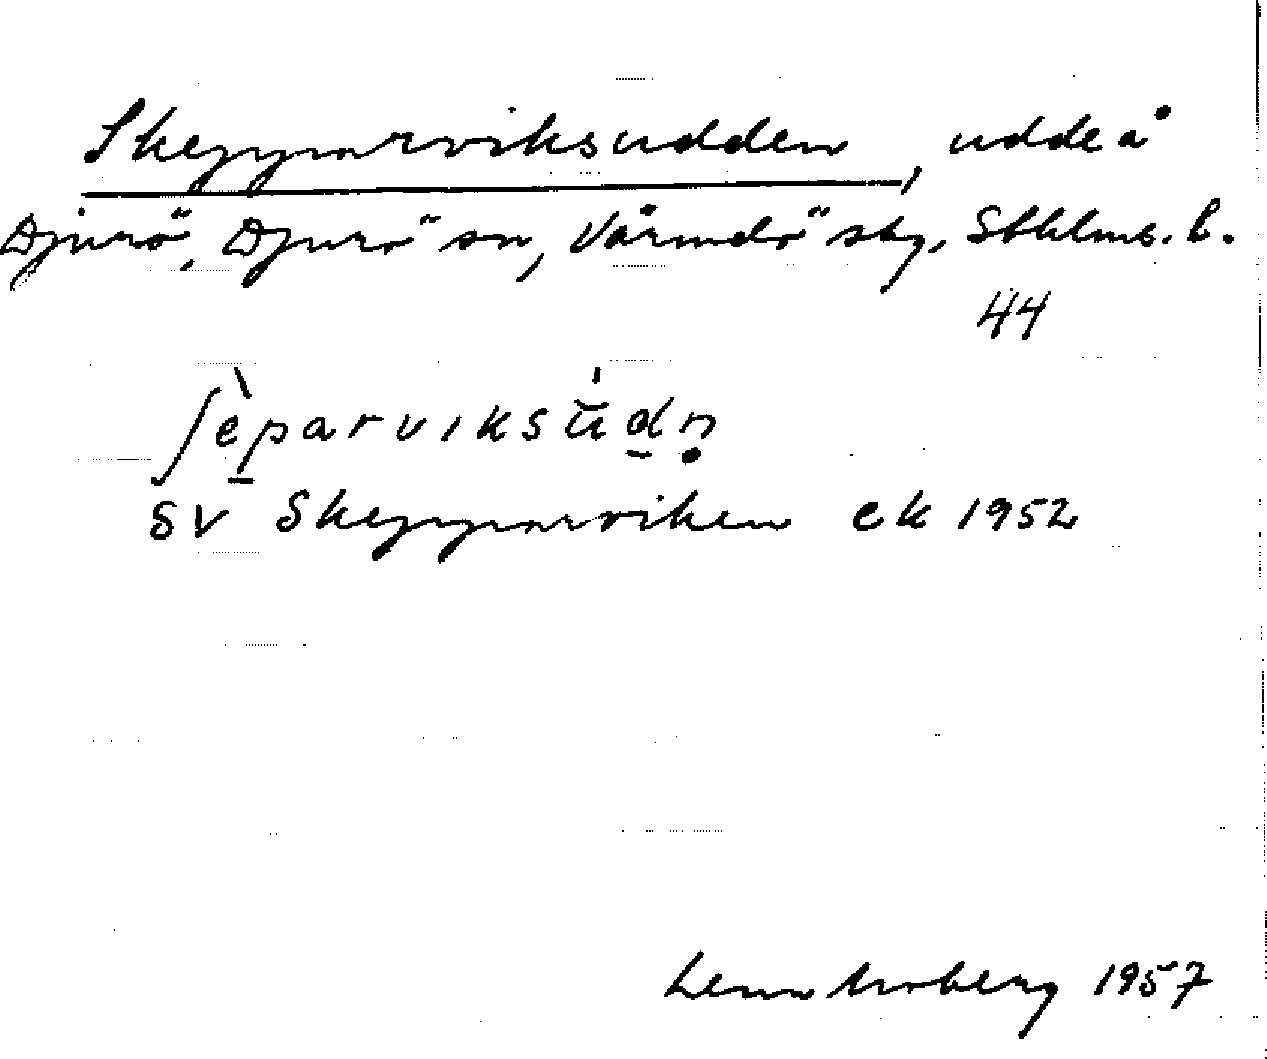 Skepparviksudden, udde å
Djurö, Djurö sn, Värmdö skg, Sthlms. l.
44
ʃèparviksŭ́dn̥
SV Skepparviken ek 1952
1957